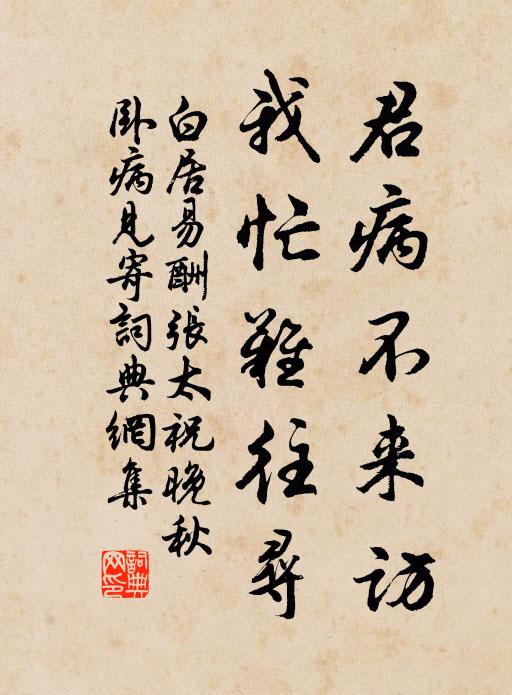 君病不来访
我忙難往尋
白居易酬張太祝晚秋
卧病見寄詞典網集
詞典网印